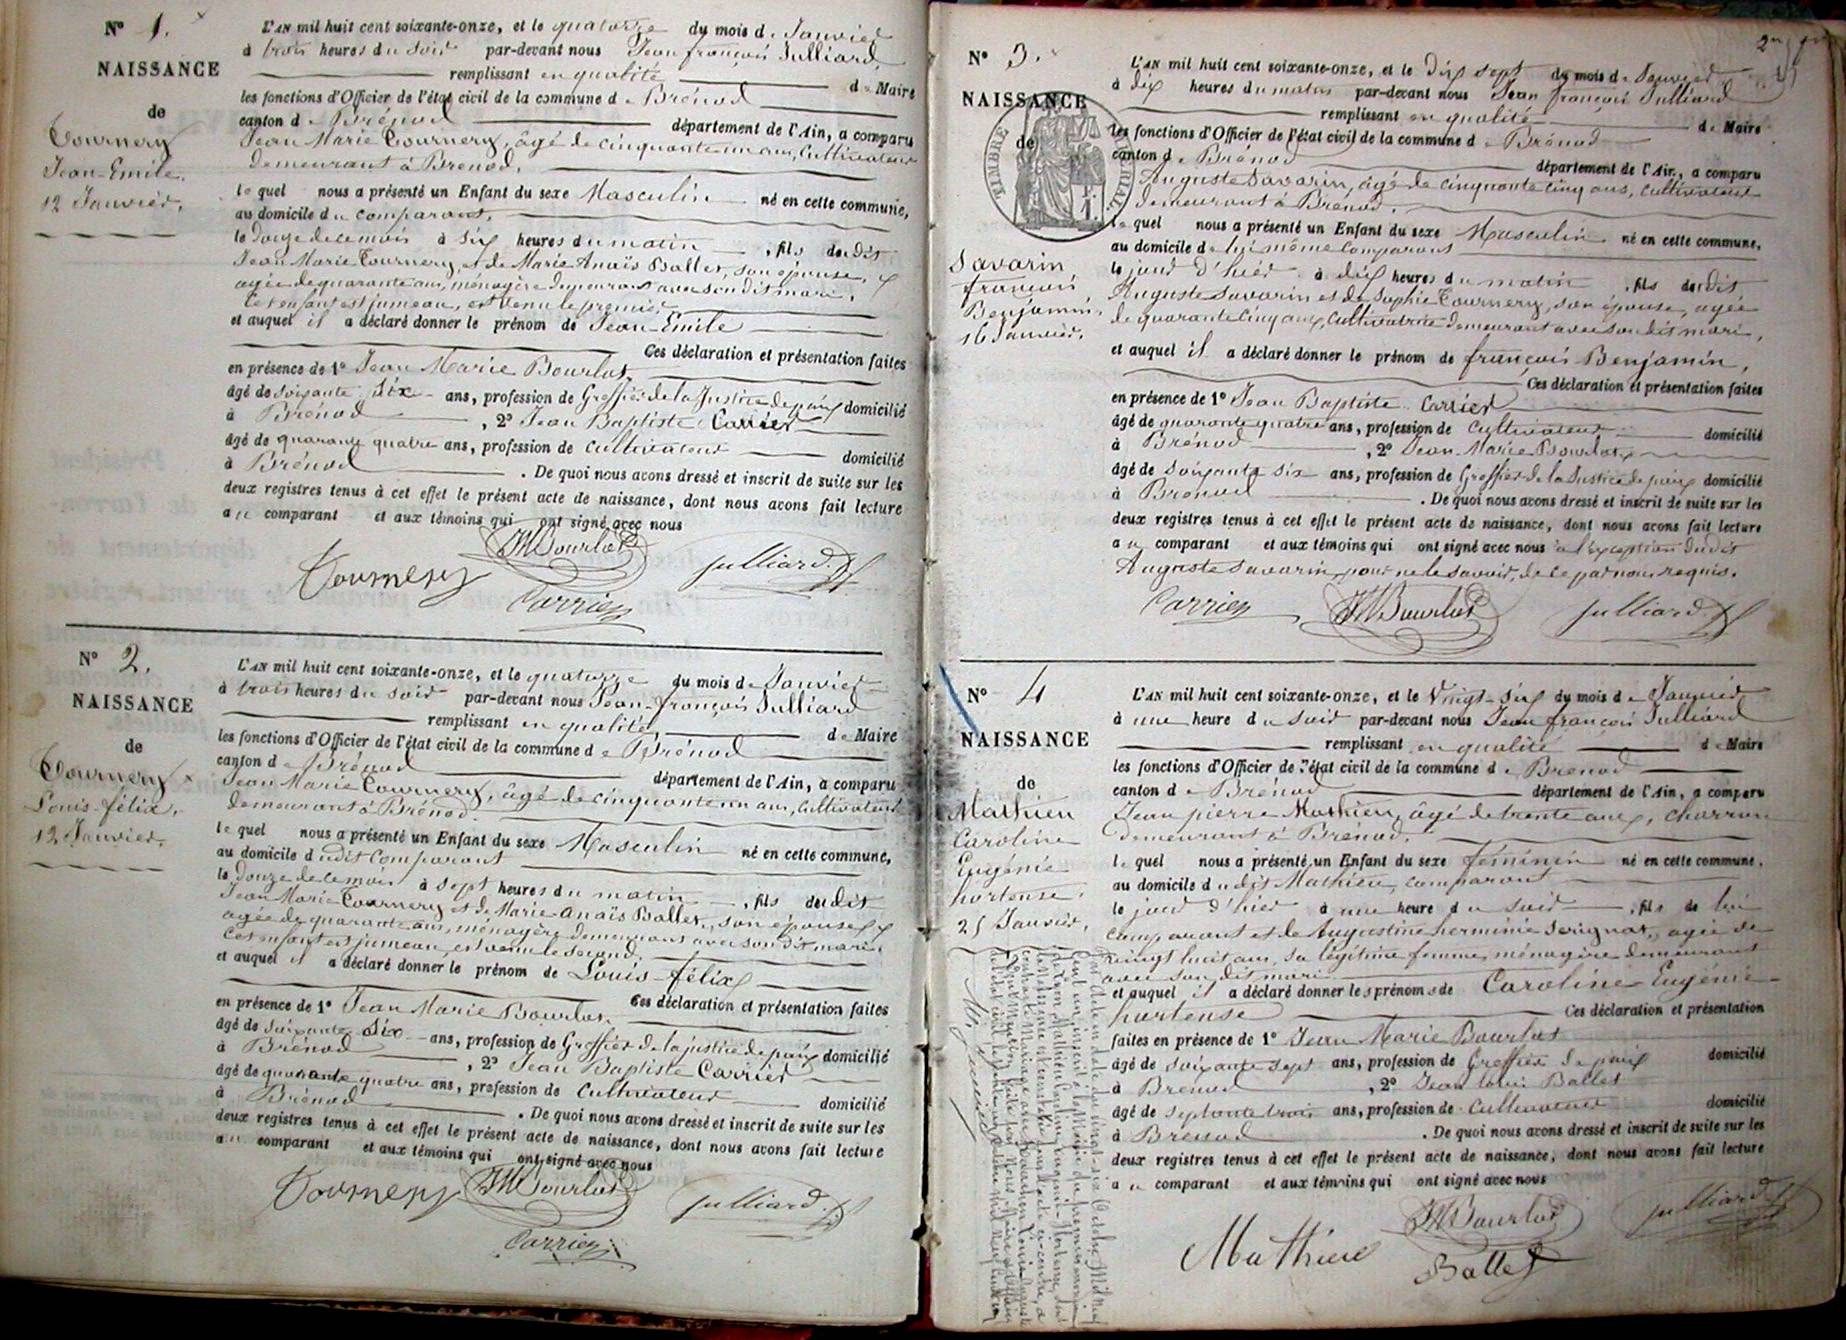 N° 1.
NAISSANCE
de
Tournery
Jean-Emile.
12 Janvier.
L'AN mil huit cent soixante-onze, et le quatorze du mois de Janvier
à trois heures du soir par-devant nous Jean françois Julliard
remplissant en qualité de Maire
les fonctions d'Officier de l'état civil de la commune de Brénod
canton de Brénod département de l'Ain, a comparu
Jean Marie Tournery, âgé de cinquante un ans, Cultivateur
demeurant à Brenod.
lequel nous a présenté un Enfant du sexe Masculin né en cette commune,
au domicile du comparant,
le douze de ce mois à six heures du matin, fils dudit
Jean Marie Tournery, et de Marie Anaïs Ballet, son épouse,
agée de quarante ans, ménagère demeurant avec son dit mari.
Cet enfant est jumeau, est venu le premier,
et auquel il a déclaré donner le prénom de Jean-Emile
Ces déclaration et présentation faites
en présence de 1° Jean Marie Bourlot
âgé de soixante six ans, profession de Greffier de la Justice de paix domicilié
à Brénod, 2° Jean Baptiste Carrier
âgé de quarante quatre ans, profession de Cultivateur domicilié
à Brénod. De quoi nous avons dressé et inscrit de suite sur les
deux registres tenus à cet effet le présent acte de naissance, dont nous avons fait lecture
au comparant et aux témoins qui ont signé avec nous
Tournery JMBourlot Julliard
Carrier
N° 2.
NAISSANCE
de
Tournery
Louis-félix.
12 Janvier.
L'AN mil huit cent soixante-onze, et le quatorze du mois de Janvier
à trois heures du soir par-devant nous Jean-françois Julliard
remplissant en qualité de Maire
les fonctions d'Officier de l'état civil de la commune de Brénod
canton de Brénod département de l'Ain, a comparu
Jean Marie Tournery, âgé de cinquante un ans, cultivateur
demeurant à Brénod.
lequel nous a présenté un Enfant du sexe Masculin né en cette commune,
au domicile dudit comparant
le douze de ce mois à sept heures du matin, fils dudit
Jean Marie Tournery et de Marie Anaïs Ballet, son épouse
agée de quarante ans, ménagère demeurant avec son dit mari.
Cet enfant est jumeau, est venu le second.
et auquel il a déclaré donner le prénom de Louis-félix
Ces déclaration et présentation faites
en présence de 1° Jean Marie Bourlot
âgé de soixante six ans, profession de Greffier de la justice de paix domicilié
à Brénod, 2° Jean Baptiste Carrier
âgé de quarante quatre ans, profession de Cultivateur domicilié
à Brénod. De quoi nous avons dressé et inscrit de suite sur les
deux registres tenus à cet effet le présent acte de naissance, dont nous avons fait lecture
au comparant et aux témoins qui ont signé avec nous
Tournery JMBourlot Julliard
Carrier
N° 3.
NAISSANCE
de
TIMBRE IMPÉRIAL
Savarin,
françois
Benjamin,
16 Janvier.
L'AN mil huit cent soixante-onze, et le dix sept du mois de Janvier
à dix heures du matin par-devant nous Jean françois Julliard
remplissant en qualité de Maire
les fonctions d'Officier de l'état civil de la commune de Brénod
canton de Brénod département de l'Ain, a comparu
Auguste Savarin, âgé de cinquante cinq ans, cultivateur
demeurant à Brenod.
lequel nous a présenté un Enfant du sexe Masculin né en cette commune,
au domicile de lui même comparant
le jour d'hier à dix heures du matin, fils dudit
Auguste Savarin et de Sophie Tournery, son épouse, agée
de quarante cinq ans, Cultivatrice demeurant avec son dit mari,
et auquel il a déclaré donner le prénom de françois Benjamin,
Ces déclaration et présentation faites
en présence de 1° Jean Baptiste Carrier
âgé de quarante quatre ans, profession de Cultivateur domicilié
à Brénod, 2° Jean Marie Bourlot,
âgé de soixante six ans, profession de Greffier de la Justice de paix domicilié
à Brenod. De quoi nous avons dressé et inscrit de suite sur les
deux registres tenus à cet effet le présent acte de naissance, dont nous avons fait lecture
au comparant et aux témoins qui ont signé avec nous à l'exception dudit
Auguste Savarin, pour ne le savoir, de ce par nous requis.
Carrier JMBourlot Julliard
N° 4
NAISSANCE
de
Mathieu
Caroline
Eugénie
hortense.
25 Janvier.
L'AN mil huit cent soixante-onze, et le Vingt-six du mois de Janvier
à une heure du soir par-devant nous Jean françois Julliard
remplissant en qualité de Maire
les fonctions d'Officier de l'état civil de la commune de Brenod
canton de Brénod département de l'Ain, a comparu
Jean pierre Mathieu, âgé de trente ans, charron
demeurant à Brenod.
lequel nous a présenté un Enfant du sexe féminin né en cette commune,
au domicile dudit Mathieu, comparant
le jour d'hier à une heure du soir, fils de lui
comparant et de Augustine herminie Sérignat, agée de
vingt huit ans, sa légitime femme, ménagère demeurant
avec son dit mari
et auquel il a déclaré donner les prénoms de Caroline Eugénie
hortense Ces déclaration et présentation
faites en présence de 1° Jean Marie Bourlot
âgé de soixante sept ans, profession de Greffier de paix domicilié
à Brénod, 2° Jean Louis Ballet
âgé de septante trois ans, profession de Cultivateur domicilié
à Brenod. De quoi nous avons dressé et inscrit de suite sur les
deux registres tenus à cet effet le présent acte de naissance, dont nous avons fait lecture
au comparant et aux témoins qui ont signé avec nous
Mathieu JMBourlot Julliard
Ballet